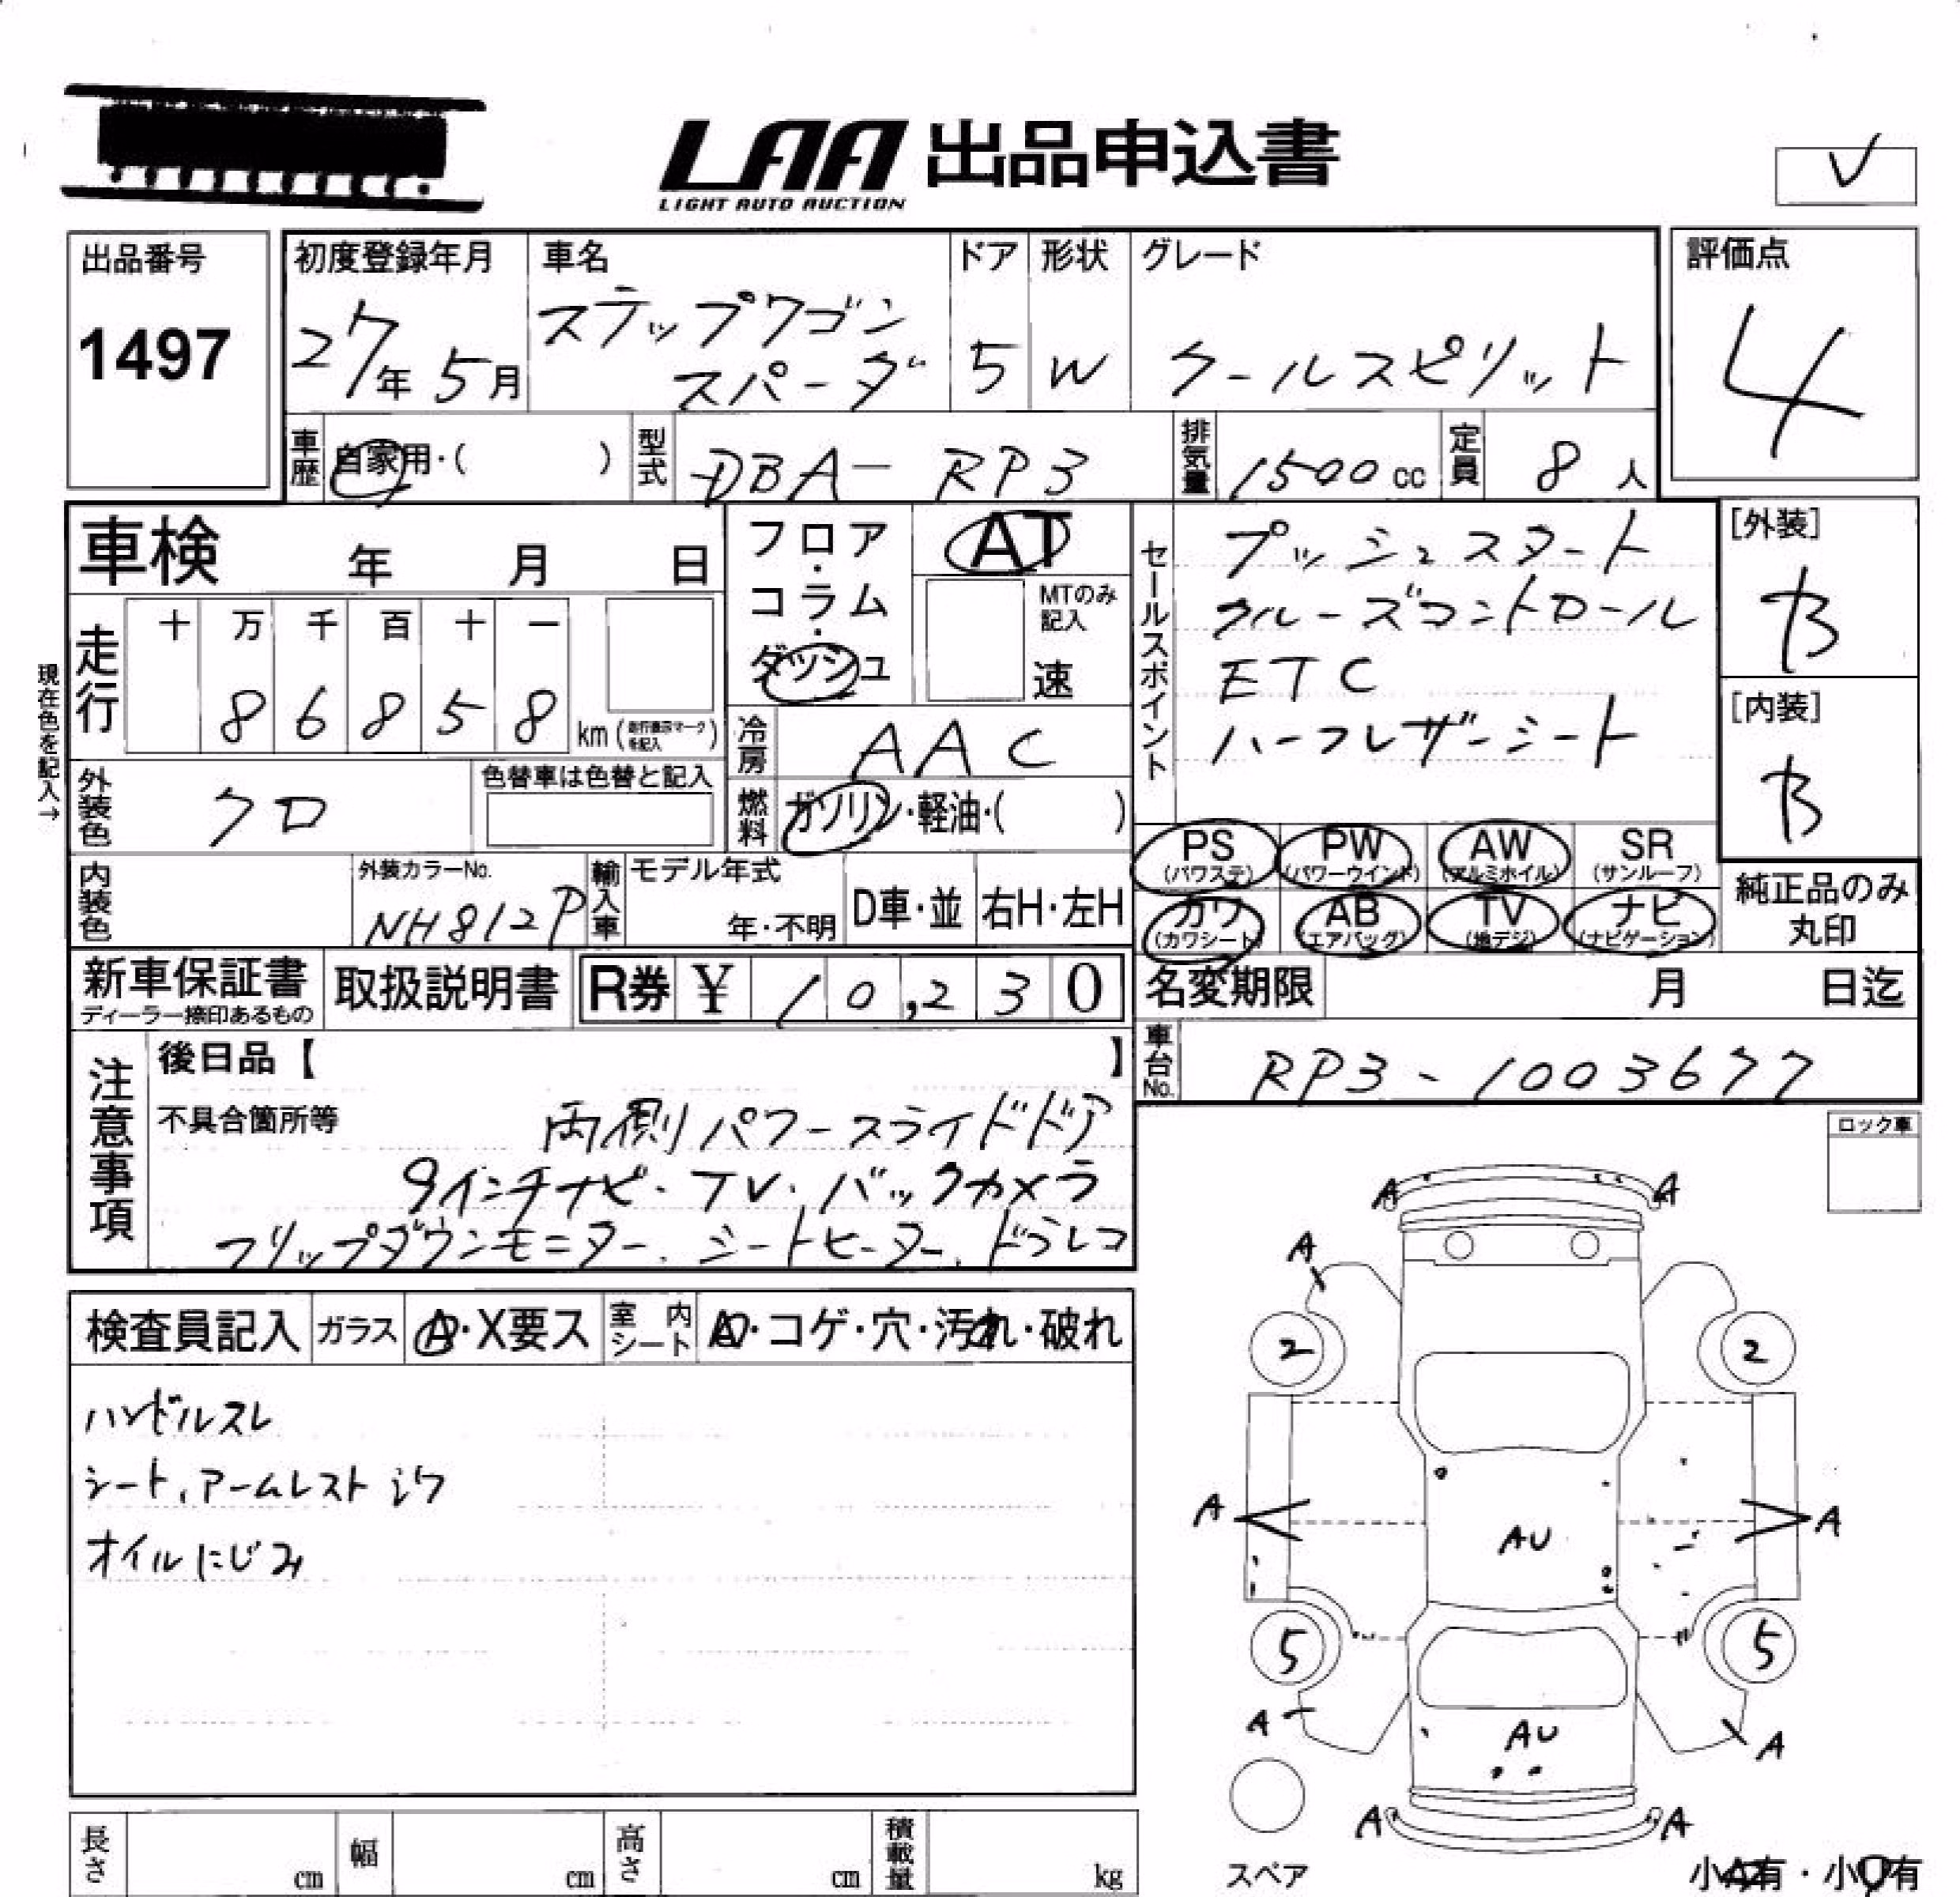 LAA 出品申込書
LIGHT AUTO AUCTION
✓
出品番号
1497
初度登録年月
27年 5月
車名
ステップワゴン
スパーダ
ドア
5
形状
W
グレード
クールスピリット
評価点
4
車歴
自家用・( )
型式
DBA-RP3
排気量
1500 cc
定員
8 人
車検 年 月 日
現在色を記入→
走行
十 万 千 百 十 一
8 6 8 5 8
km (走行表示マークを記入)
フロア・コラム・ダッシュ
AT
MTのみ記入
速
冷房
AAC
燃料
ガソリン・軽油・( )
セールスポイント
プッシュスタート
クルーズコントロール
ETC
ハーフレザーシート
[外装]
B
[内装]
B
外装色
クロ
色替車は色替と記入
内装色
外装カラーNo.
NH812P
輸入車
モデル年式
年・不明
D車・並
右H・左H
PS (パワステ)
PW (パワーウインド)
AW (アルミホイル)
SR (サンルーフ)
カワ (カワシート)
AB (エアバッグ)
TV (地デジ)
ナビ (ナビゲーション)
純正品のみ
丸印
新車保証書
ディーラー捺印あるもの
取扱説明書
R券 ¥ 10,230
名変期限 月 日迄
車台No.
RP3-1003677
注意事項
後日品【 】
不具合箇所等
両側パワースライドドア
9インチナビ・TV・バックカメラ
フリップダウンモニター、シートヒーター、ドラレコ
ロック車
検査員記入
ガラス
A・X要ス
室内シート
・コゲ・穴・汚れ・破れ
ハンドルスレ
シート、アームレスト シワ
オイルにじみ
A A
A
2 2
A A
AU
5 5
A A
AU
A A
スペア
長さ cm
幅 cm
高さ cm
積載量 kg
小 有・小 有